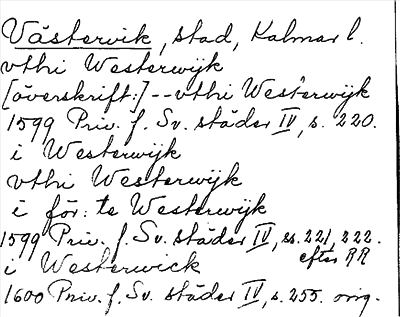 Västervik, stad, Kalmar l.
vthi Westerwijk
[överskrift:] -- vthi Westerwijk
1599 Priv. f. Sv. städer IV, s. 220.
i Westerwijk
vthi Westerwijk
i för: te Westerwijk
1599 Priv. f. Sv. städer IV, ss. 221, 222.
efter RR
i Westerwick
1600 Priv. f. Sv. städer IV, s. 255. orig.